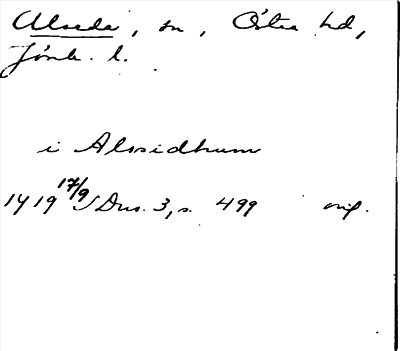 Alseda, sn, Östra hd,
Jönk. l.
i Alssidhum
1419 17/9 Dns. 3, s. 499 orig.